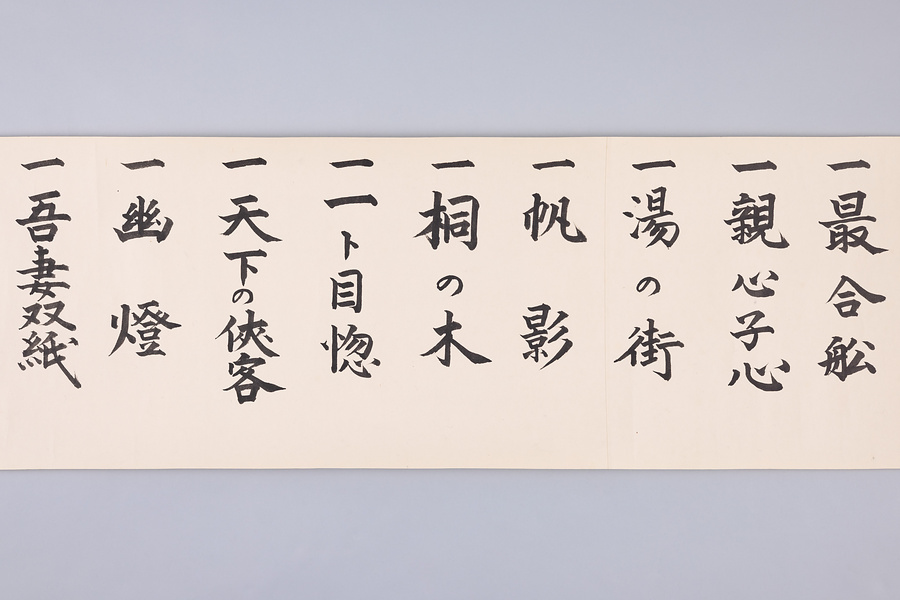 一最合舩
一親心子心
一湯の街
一帆影
一桐の木
一一ト目惚
一天下の俠客
一幽燈
一吾妻双紙